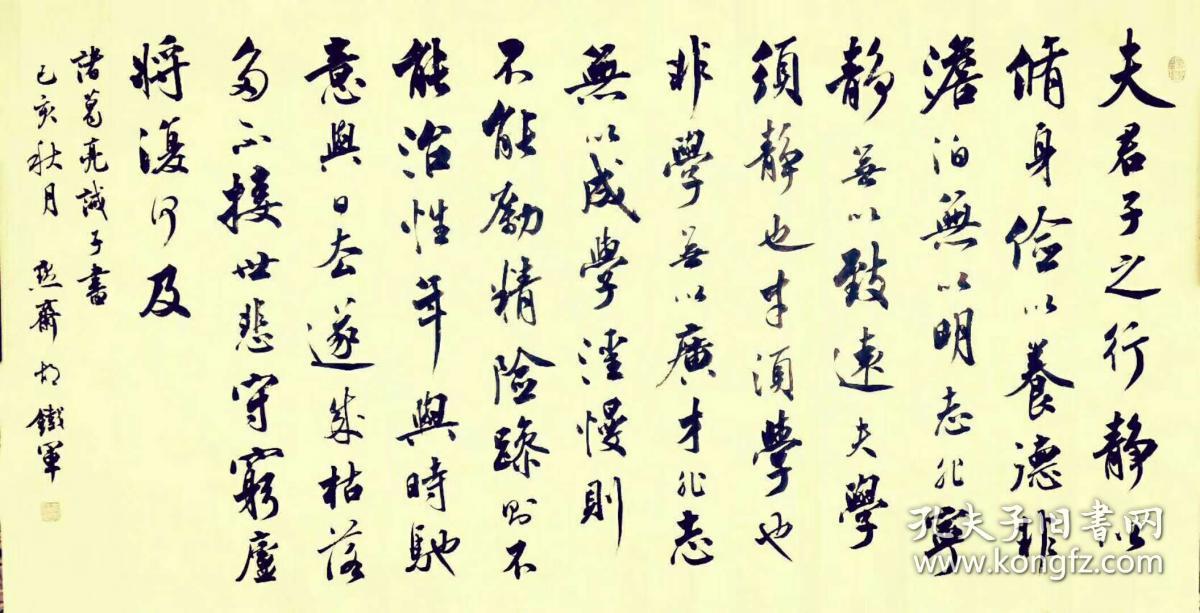 夫君子之行静以
脩身儉以養德非
澹泊無以明志非寧
静無以致遠夫學
須静也才須學也
非學無以廣才非志
無以成學滛慢則
不能勵精險躁則不
能治性年與時馳
意與日去遂成枯落
多不接世悲守窮廬
將復何及
諸葛亮誡子書
己亥秋月 胡鐵軍
孔夫子旧書网
www.kongfz.com